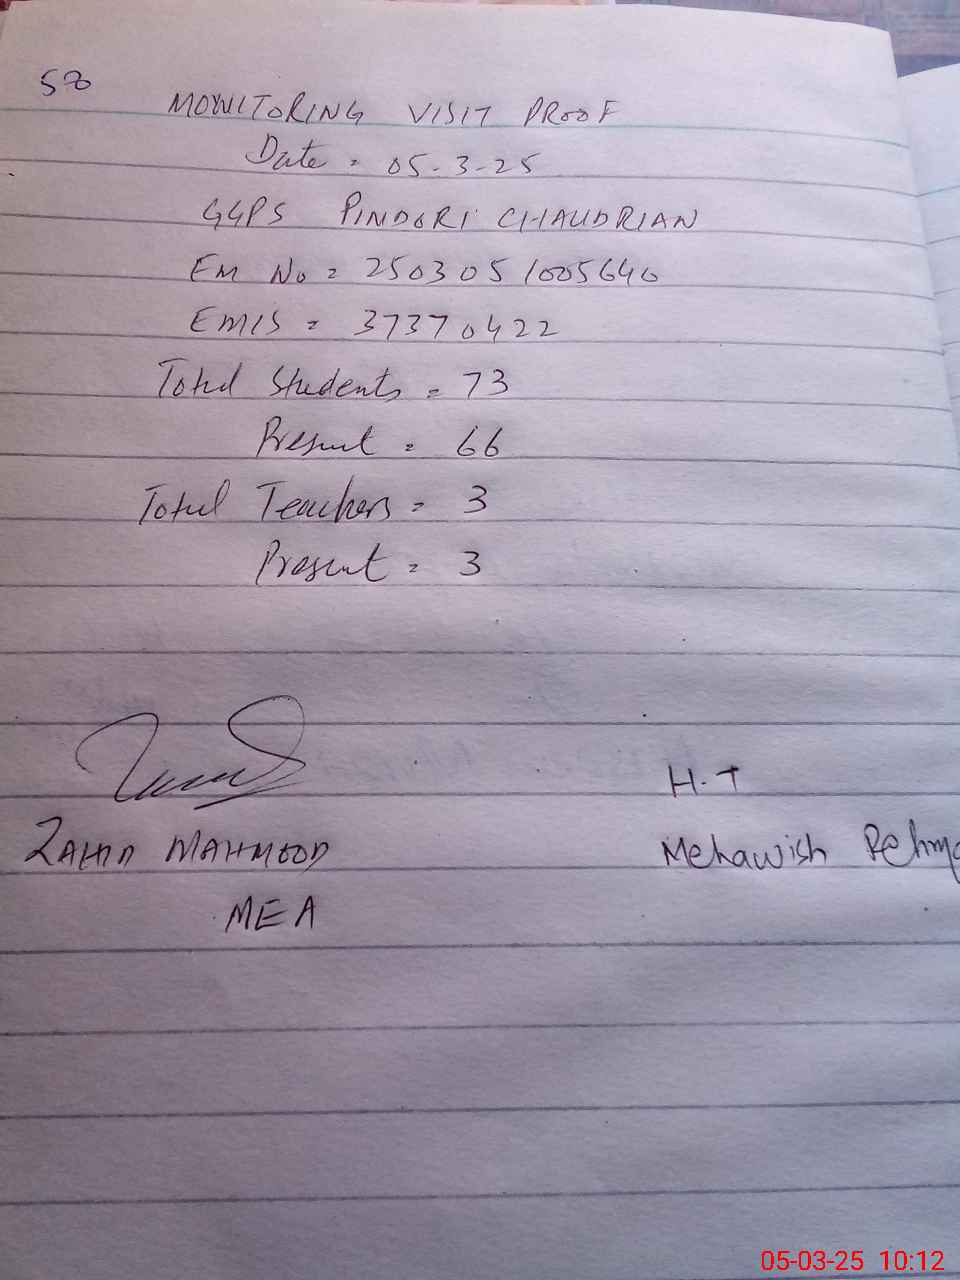 570
MONITORING VISIT PROOF
Date = 05-3-25
GGPS PINDORI CHAUDRIAN
Em No = 2503051005640
EMIS = 37370422
Total Students = 73
Present = 66
Total Teachers = 3
Present = 3
H.T
ZAHID MAHMOOD
Mehawish Rehma
MEA
05-03-25 10:12